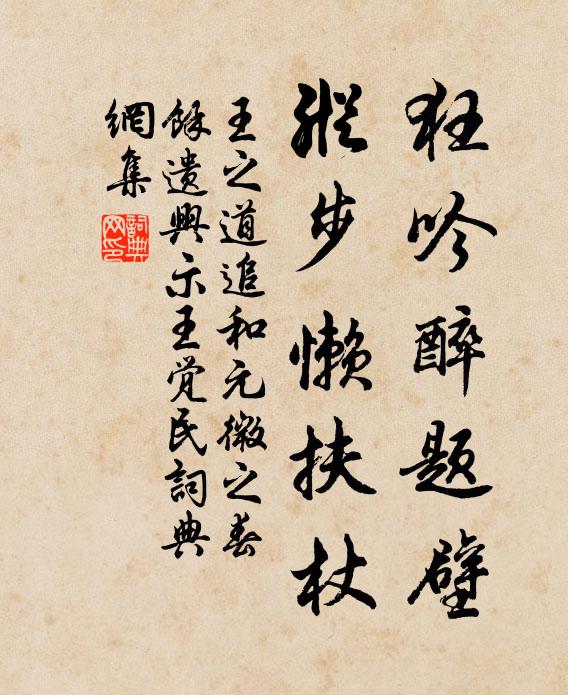 狂吟醉题壁
纵步懒扶杖
王之道追和元微之春
馀遣興示王觉民詞典
網集
詞典
网印